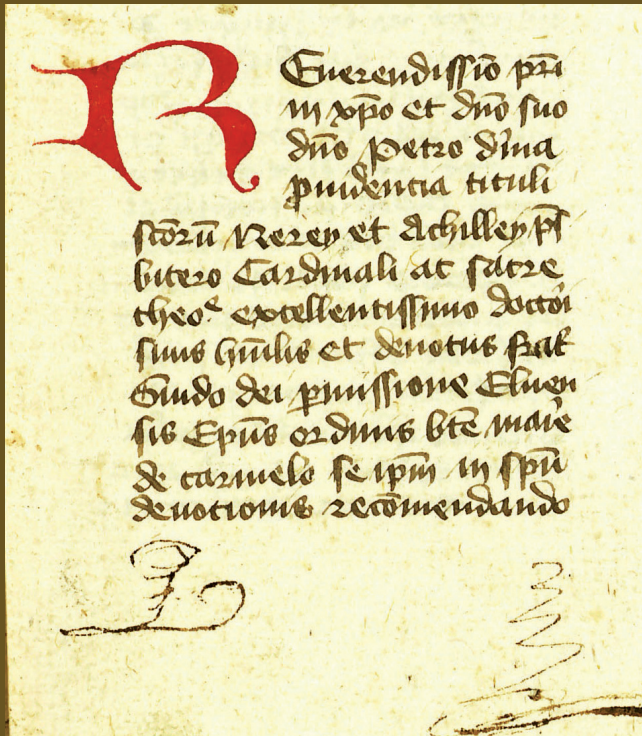 REuerendissīo pr̄i
in xp̄o et dn̄o suo
dn̄o Petro diuīa
ꝓuidentia tituli
sctōrū Nerey et Achilley p̄s
bitero Cardinali ac sacre
theoᵉ excellentissimo doctori
suus hūilis et deuotus frat̄
Guido dei ꝑmissione Eluen
sis Ep̄us ordinis btē marie
de carmelo se ip̄m in sp̄u
deuotionis recōmendando